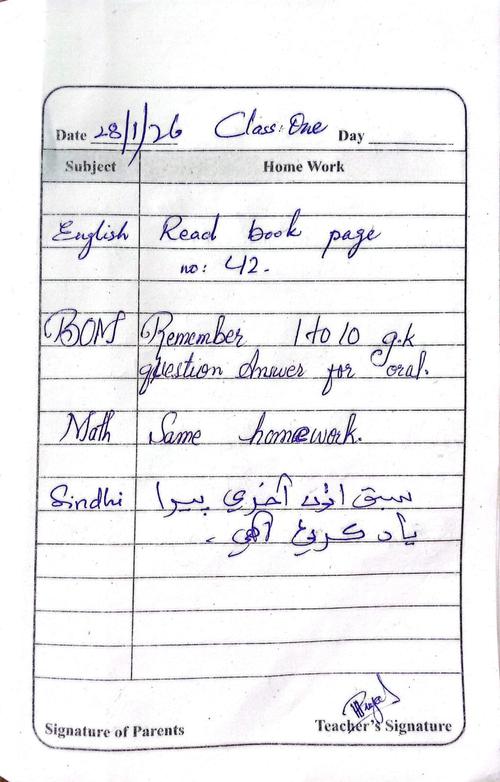 Date 28/1/26 Class: One Day
Subject Home Work
English Read book page
no: 42.
BOM Remember 1 to 10 g.k
question Answer for oral.
Math Same homework.
Sindhi سبق اٺون آخري پيرا
ياد ڪرڻو آهي .
Signature of Parents Teacher's Signature